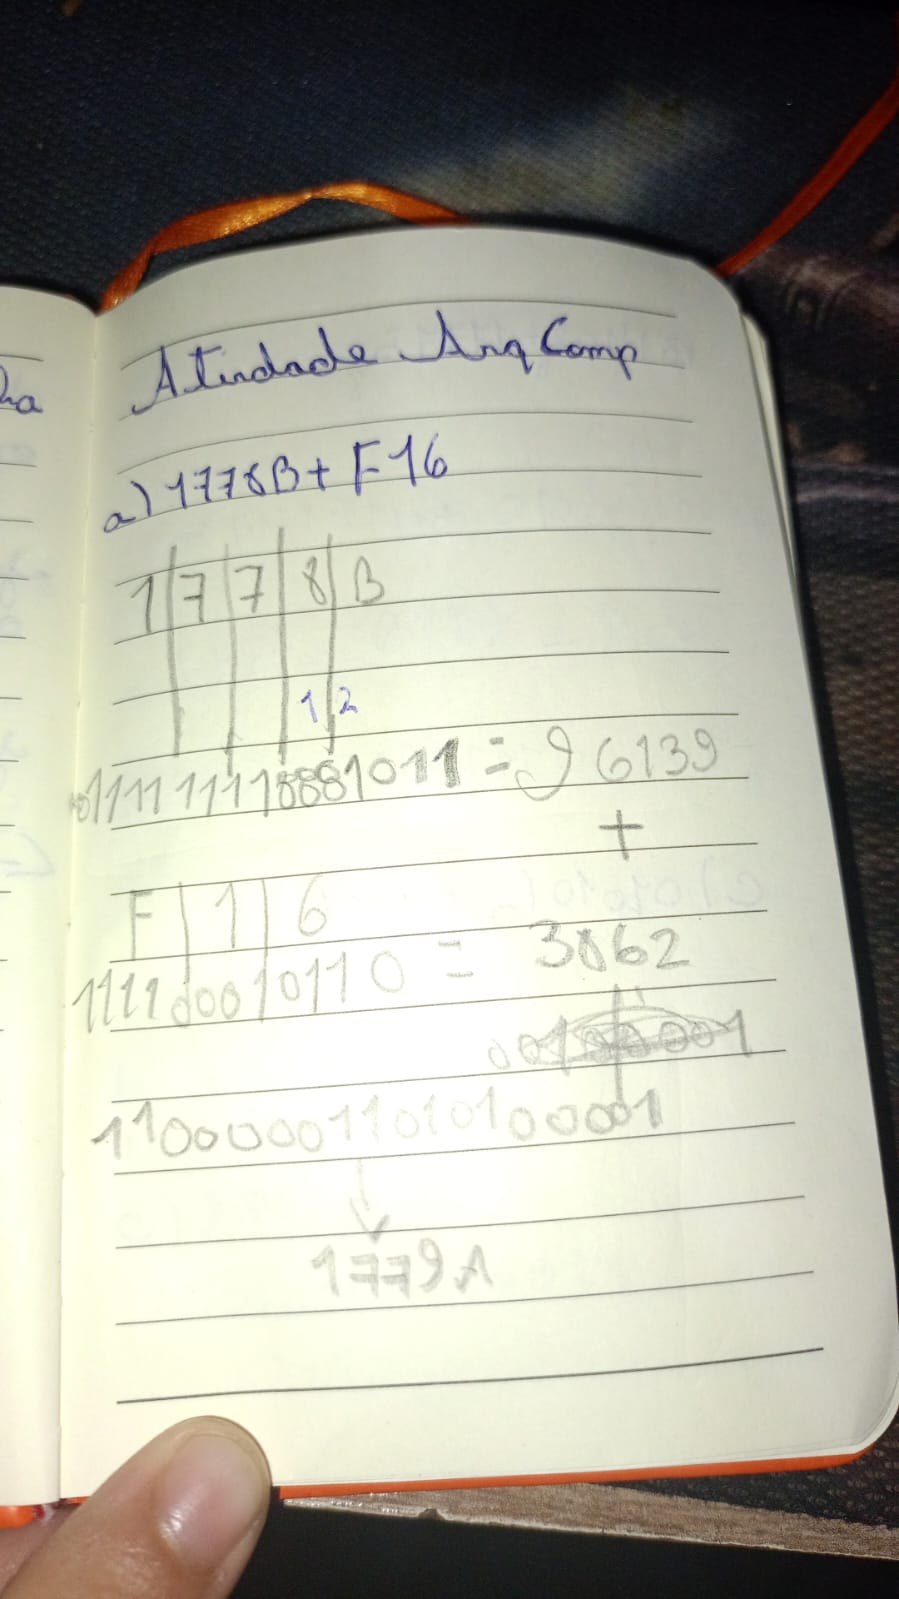 Atividade Arq Comp
a) 1778B + F16
1 7 7 8 B
1 2
01111 1111 8881011 = 96139
+
F 1 6
1111 0001 0110 = 3862
110000011010100001
1779A